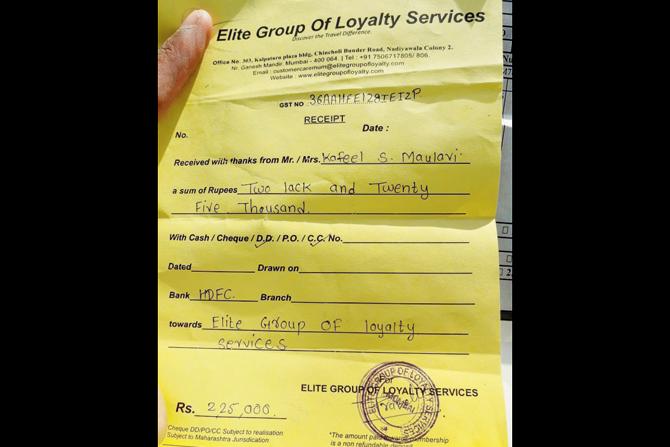 Elite Group Of Loyalty Services
Discover the Travel Difference.
Office No. 303, Kalpataru plaza bldg, Chincholi Bunder Road, Nadiyawala Colony 2.
Nr. Ganesh Mandir. Mumbai - 400 064. | Tel : +91 7506717805/ 806.
Email : customercaremum@elitegroupofloyalty.com
Website : www.elitegroupofloyalty.com
GST NO
RECEIPT
No. Date :
Received with thanks from Mr. / Mrs. Kafeel S. Maulavi
a sum of Rupees Two lack and Twenty
Five Thousand.
With Cash / Cheque / D.D. / P.O. / C.C. No.
Dated Drawn on
Bank HDFC. Branch
towards Elite Group OF loyalty
services
For
ELITE GROUP OF LOYALTY SERVICES
ELITE GROUP OF LOYALTY SERVICES
Rs. 225,000.
Cheque DD/PO/CC Subject to realisation
Subject to Maharashtra Jurisdication
*The amount paid membership
is a non refundable